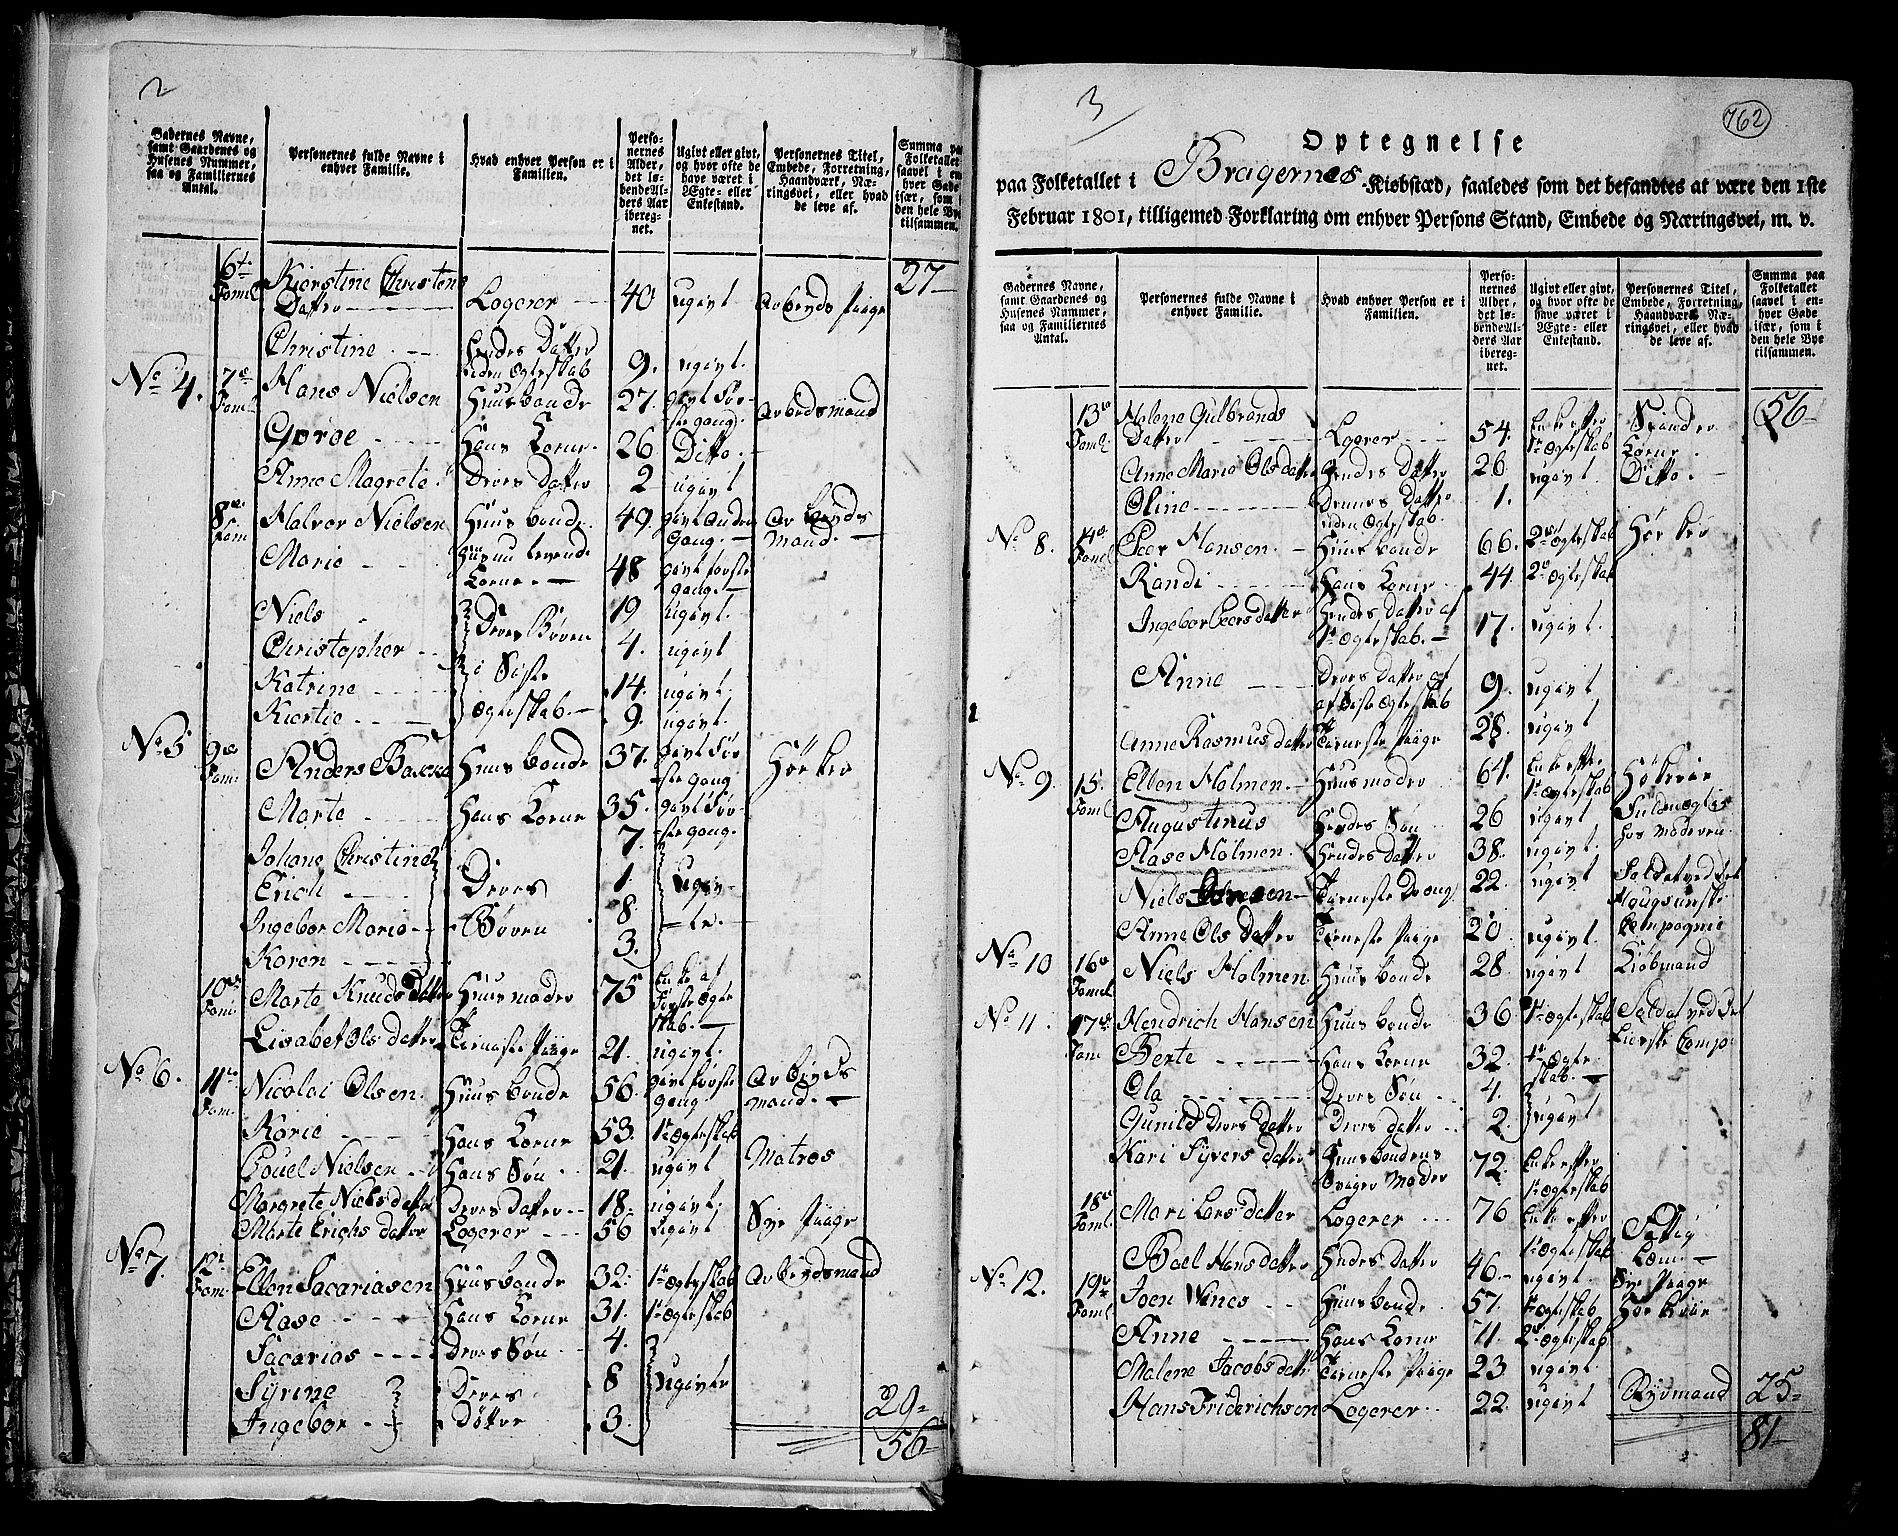 2
Gadernes Navne, samt Gaardenes og Husenes Nummer, saa og Familiernes Antal.
Personernes fulde Navne i enhver Familie.
Hvad enhver Person er i Familien.
Personernes Alder, det løbende Alders Aar iberegnet.
Ugivt eller givt, og hvor ofte de have været i Ægte- eller Enkestand.
Personernes Titel, Embede, Forretning, Haandværk, Næringsvei, eller hvad de leve af.
Summa paa Folketallet saavel i enhver Gade især, som i den hele Bye tilsammen.
27
6te Faml Kierstine Christens Datter Logerer 40 ugivt Arbeyds Piige
Christine Hendes Datter uden Ægteskab 9. ugivt.
No 4. 7de Faml Hans Nielsen Huusbonde 27. givt Første gang. Arbedsmand
Goroe Hans Kone 26 Ditto
Anne Magrete Deres Datter 2 ugivt
8de Fam Halvor Nielsen Huusbonde 49. givt Anden Gang. Arbeyds mand.
Marie Huns nu levende Kone. 48 givt første gang.
Niels Deres Børen 19 ugivt.
Christopher 4. ugivt
Katrine i Siste 14. ugivt.
Kiersti Ægteskab. 9. ugivt.
No 5 9de Fam. Anders Huusbonde 37. givt Første gang Hörker
Marte Hans Kone 35. givt Første gang.
Johane Christine 7.
Erich Deres 1. ugiv-
Ingebor Marie Børen 8 te.
Karen 3.
10de Fam Marte Knuds datter Huusmoder 75 Enke af Første Ægteskab.
Lisabet Ols datter Tieneste Piige 21. ugivt.
No 6. 11te Fam. Nicolai Olsen Huusbonde 56. givt første gang. Arbeyds mand.
Karie Hans Kone 53. 1te Ægteskab
Pouel Nielsen Hans Søn 21. ugivt Matros
Margrete Niels datter Deres Datter 18. ugivt.
Marte Erichs datter Logerer 56 ugivt Sye Piige
No 7. 12te Fam. Ellen Sacariasen Huusbonde 32. 1te Ægteskab Arbeydsmand
Aase Hans Kone 31. 1te Ægteskab
Sacarias Deres Søn 4.
Syrine Deres 8 ugivte
Ingebor Døtter 3.
29
56
3
762
Optegnelse
paa Folketallet i Bragernes Kiøbstæd, saaledes som det befandtes at være den 1ste
Februar 1801, tilligemed Forklaring om enhver Persons Stand, Embede og Næringsvei, m. v.
Gadernes Navne, samt Gaardenes og Husenes Nummer, saa og Familiernes Antal.
Personernes fulde Navne i enhver Familie.
Hvad enhver Person er i Familien.
Personernes Alder, det løbende Alders Aar iberegnet.
Ugivt eller givt, og hvor ofte de have været i Ægte- eller Enkestand.
Personernes Titel, Embede, Forretning, Haandværk, Næringsvei, eller hvad de leve af.
Summa paa Folketallet saavel i enhver Gade især, som i den hele Bye tilsammen.
56
13de Faml. Helene Gulbrands Datter Logerer 54. Enke efter 1te Ægteskab Spinder Kone.
Anne Marie Ols datter Hendes Datter 26 ugivt. Ditto.
Oline Dennes Datter uden Ægteskab. 1.
No 8. 14de Faml Peer Hansen Huusbonde 66. 2det Ægteskab Hörker
Randi Hans Kone 44. 2de Ægteskab
Ingebor Peers datter Hendes datter af 1te Ægteskab. 17. ugivt.
Anne Deres Datter af Ægteskab 9. ugivt
Anne Rasmus datter Tieneste Piige 28. ugivt
No 9. 15. Faml Ellen Holmen Huusmoder 64. Enke efter 1te Ægteskab Hökerie
Augustinus Hendes Søn 26 ugivt Fuldmægtig hos Moderen
Aase Holmen Hendes datter 38. ugivt.
Niels Tieneste Dreng 22. ugivt Soldat ved det Compagnie
Anne Ols datter Tieneste Piige 20 ugivt.
No 10 16de Faml Niels Holmen Huusbonde 28 ugivt Kiöbmand
No 11. 17de Fam Hendrich Hansen Huusbonde 36. 1te Ægteskab Soldat ved Det Comp.
Berte Hans Kone 32. 1te Ægteskab.
Ola Deres Søn 4.
Gunild Deres datter Deres datter 2. ugivt
Kari Syvers datter Huusbondens Moder 72. Enke efter 1te Ægteskab
18de Faml. Mari Lars datter Logerer 76 Enke efter 1te Ægteskab Fattig Lem
Boel Hans datter Hendes datter 46. ugivt. Sye Piige
No 12. 19de Faml Joen Huusbonde 57. 1te Ægteskab
Anne Hans Kone 71. 2de Ægteskab
Malene Jacobs datter Tieneste Piige 23 ugivt
Hans Friderichsen Logerer 22. ugivt. 25
81